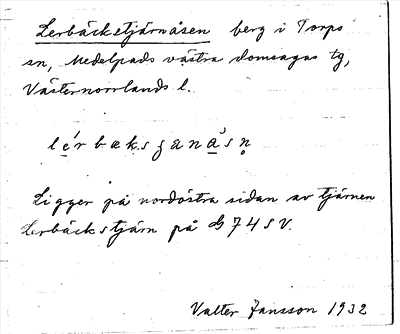 Lerbäckstjärnåsen berg i Torps
sn, Medelpads västra domsagas tg,
Västernorrlands l.
Ligger på nordöstra sidan av tjärnen
Lerbäckstjärn på 74 SV.
Valter Jansson 1932